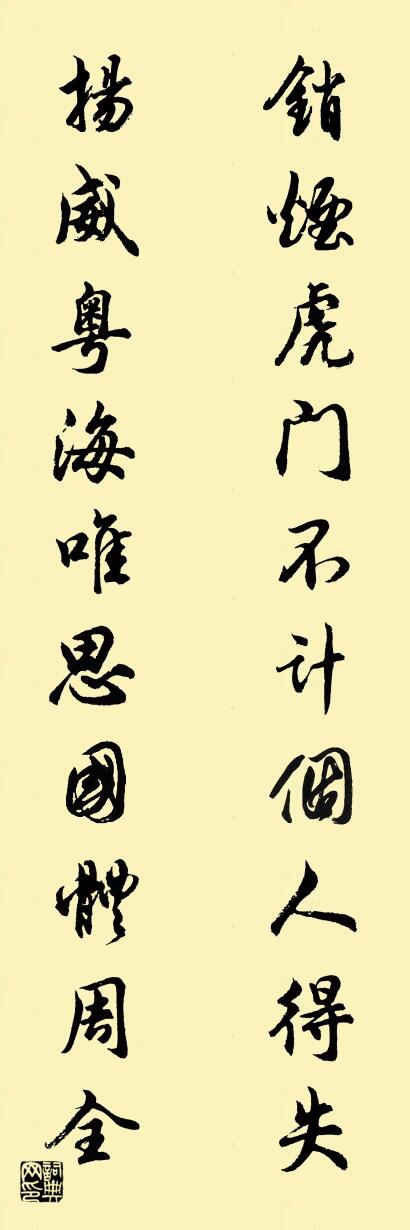 銷煙虎门不计個人得失
揚威粵海唯思國體周全
詞典网印